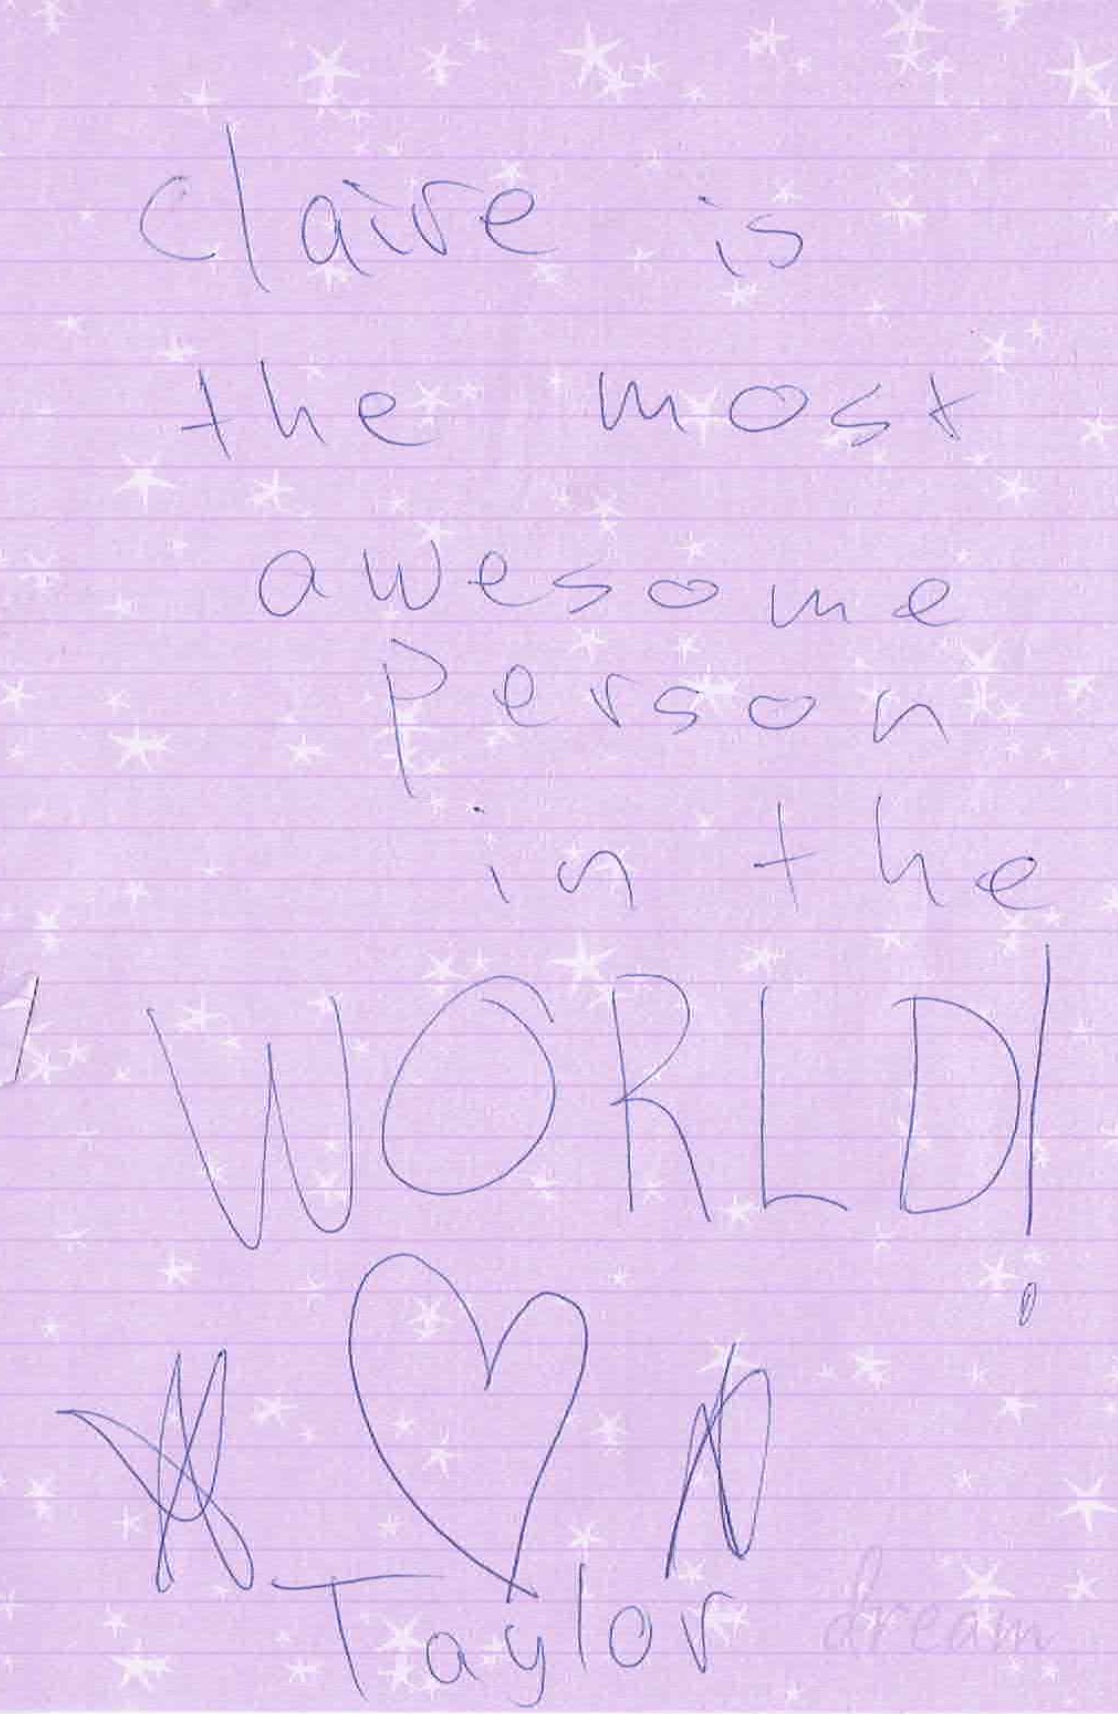 Claire is
the most
awesome
person
in the
WORLD!
Taylor
dream